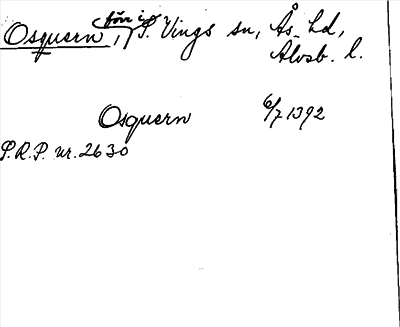 Osquern, förr i S. Vings sn, Ås hd,
Älvsb. l.
Osquern 6/7 1392
P.R.P. nr. 2630